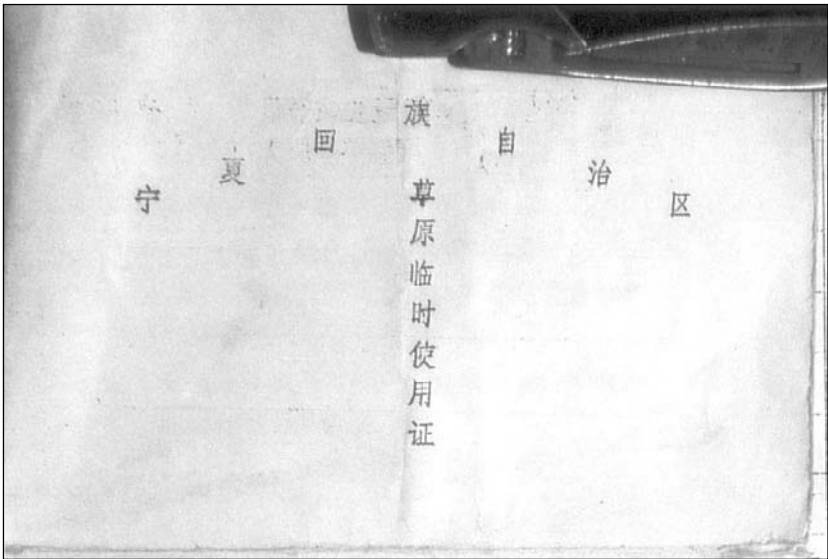 宁夏回族自治区
草原临时使用证